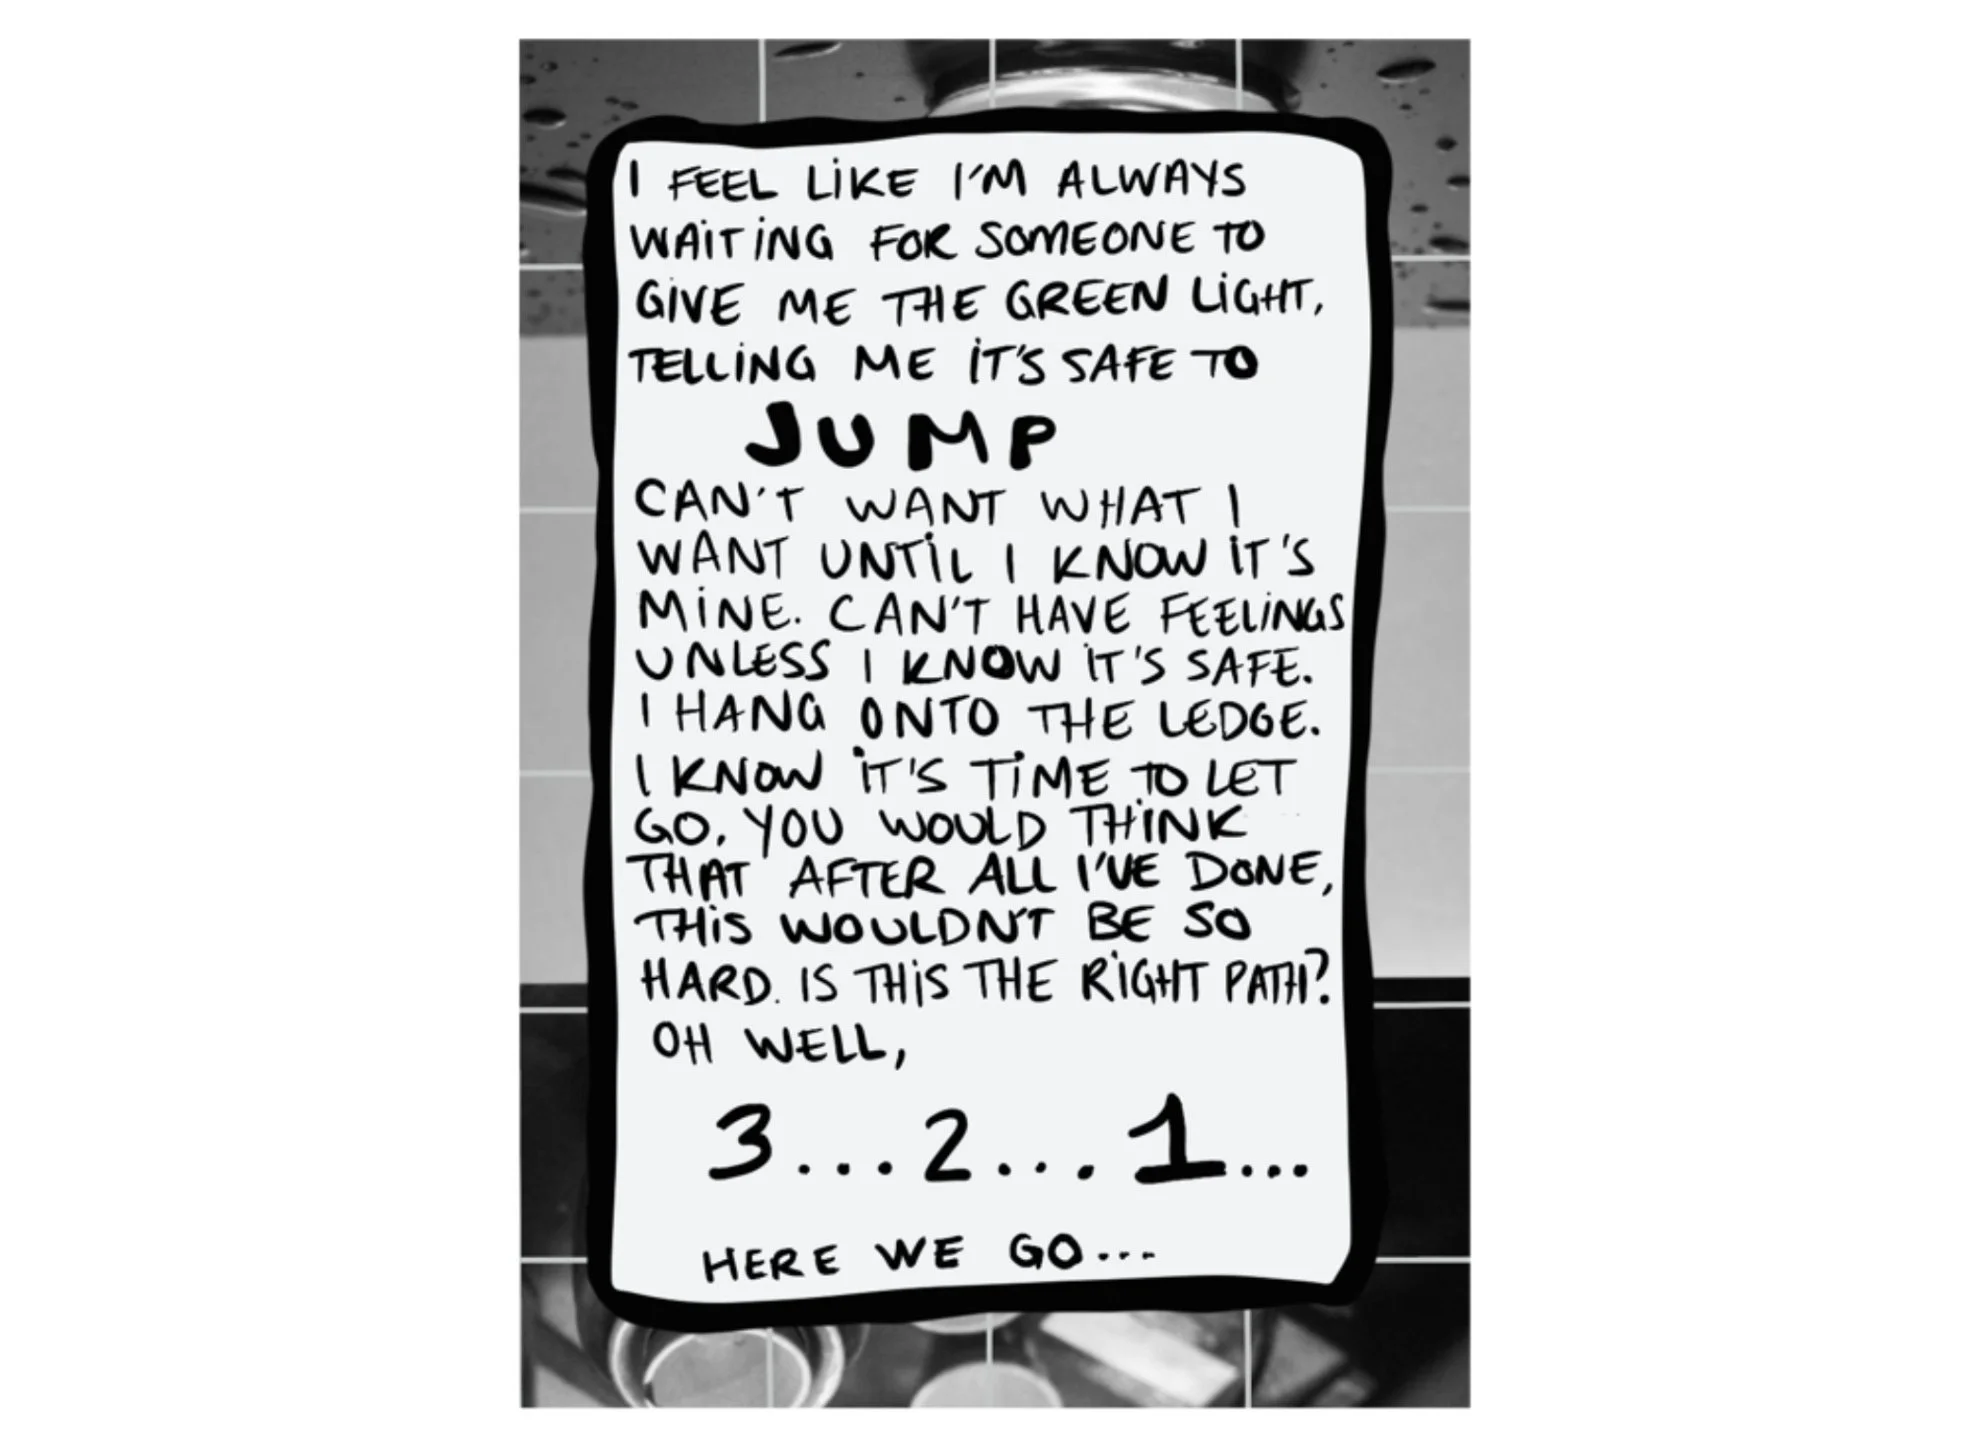 I FEEL LIKE I'M ALWAYS
WAITING FOR SOMEONE TO
GIVE ME THE GREEN LIGHT,
TELLING ME IT'S SAFE TO
JUMP
CAN'T WANT WHAT I
WANT UNTIL I KNOW IT'S
MINE. CAN'T HAVE FEELINGS
UNLESS I KNOW IT'S SAFE.
I HANG ONTO THE LEDGE.
I KNOW IT'S TIME TO LET
GO. YOU WOULD THINK
THAT AFTER ALL I'VE DONE,
THIS WOULDN'T BE SO
HARD. IS THIS THE RIGHT PATH?
OH WELL,
3...2...1...
HERE WE GO...